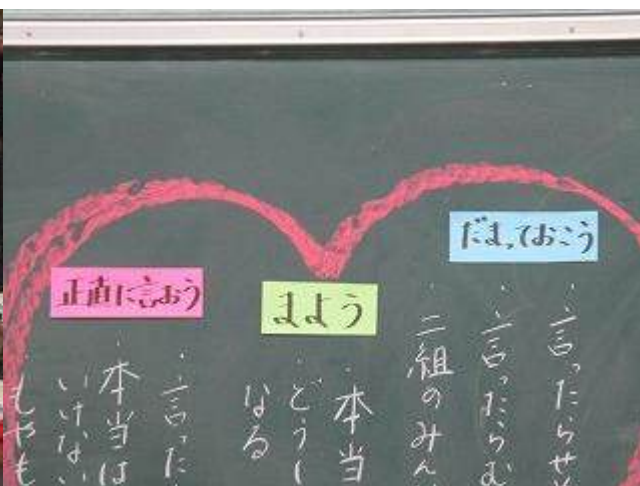 だまっておこう
・言ったらせ
・言ったらむ
・二組のみん
まよう
・本当
・どうし
なる
正直に言おう
・言った
・本当は
いけない
もやも